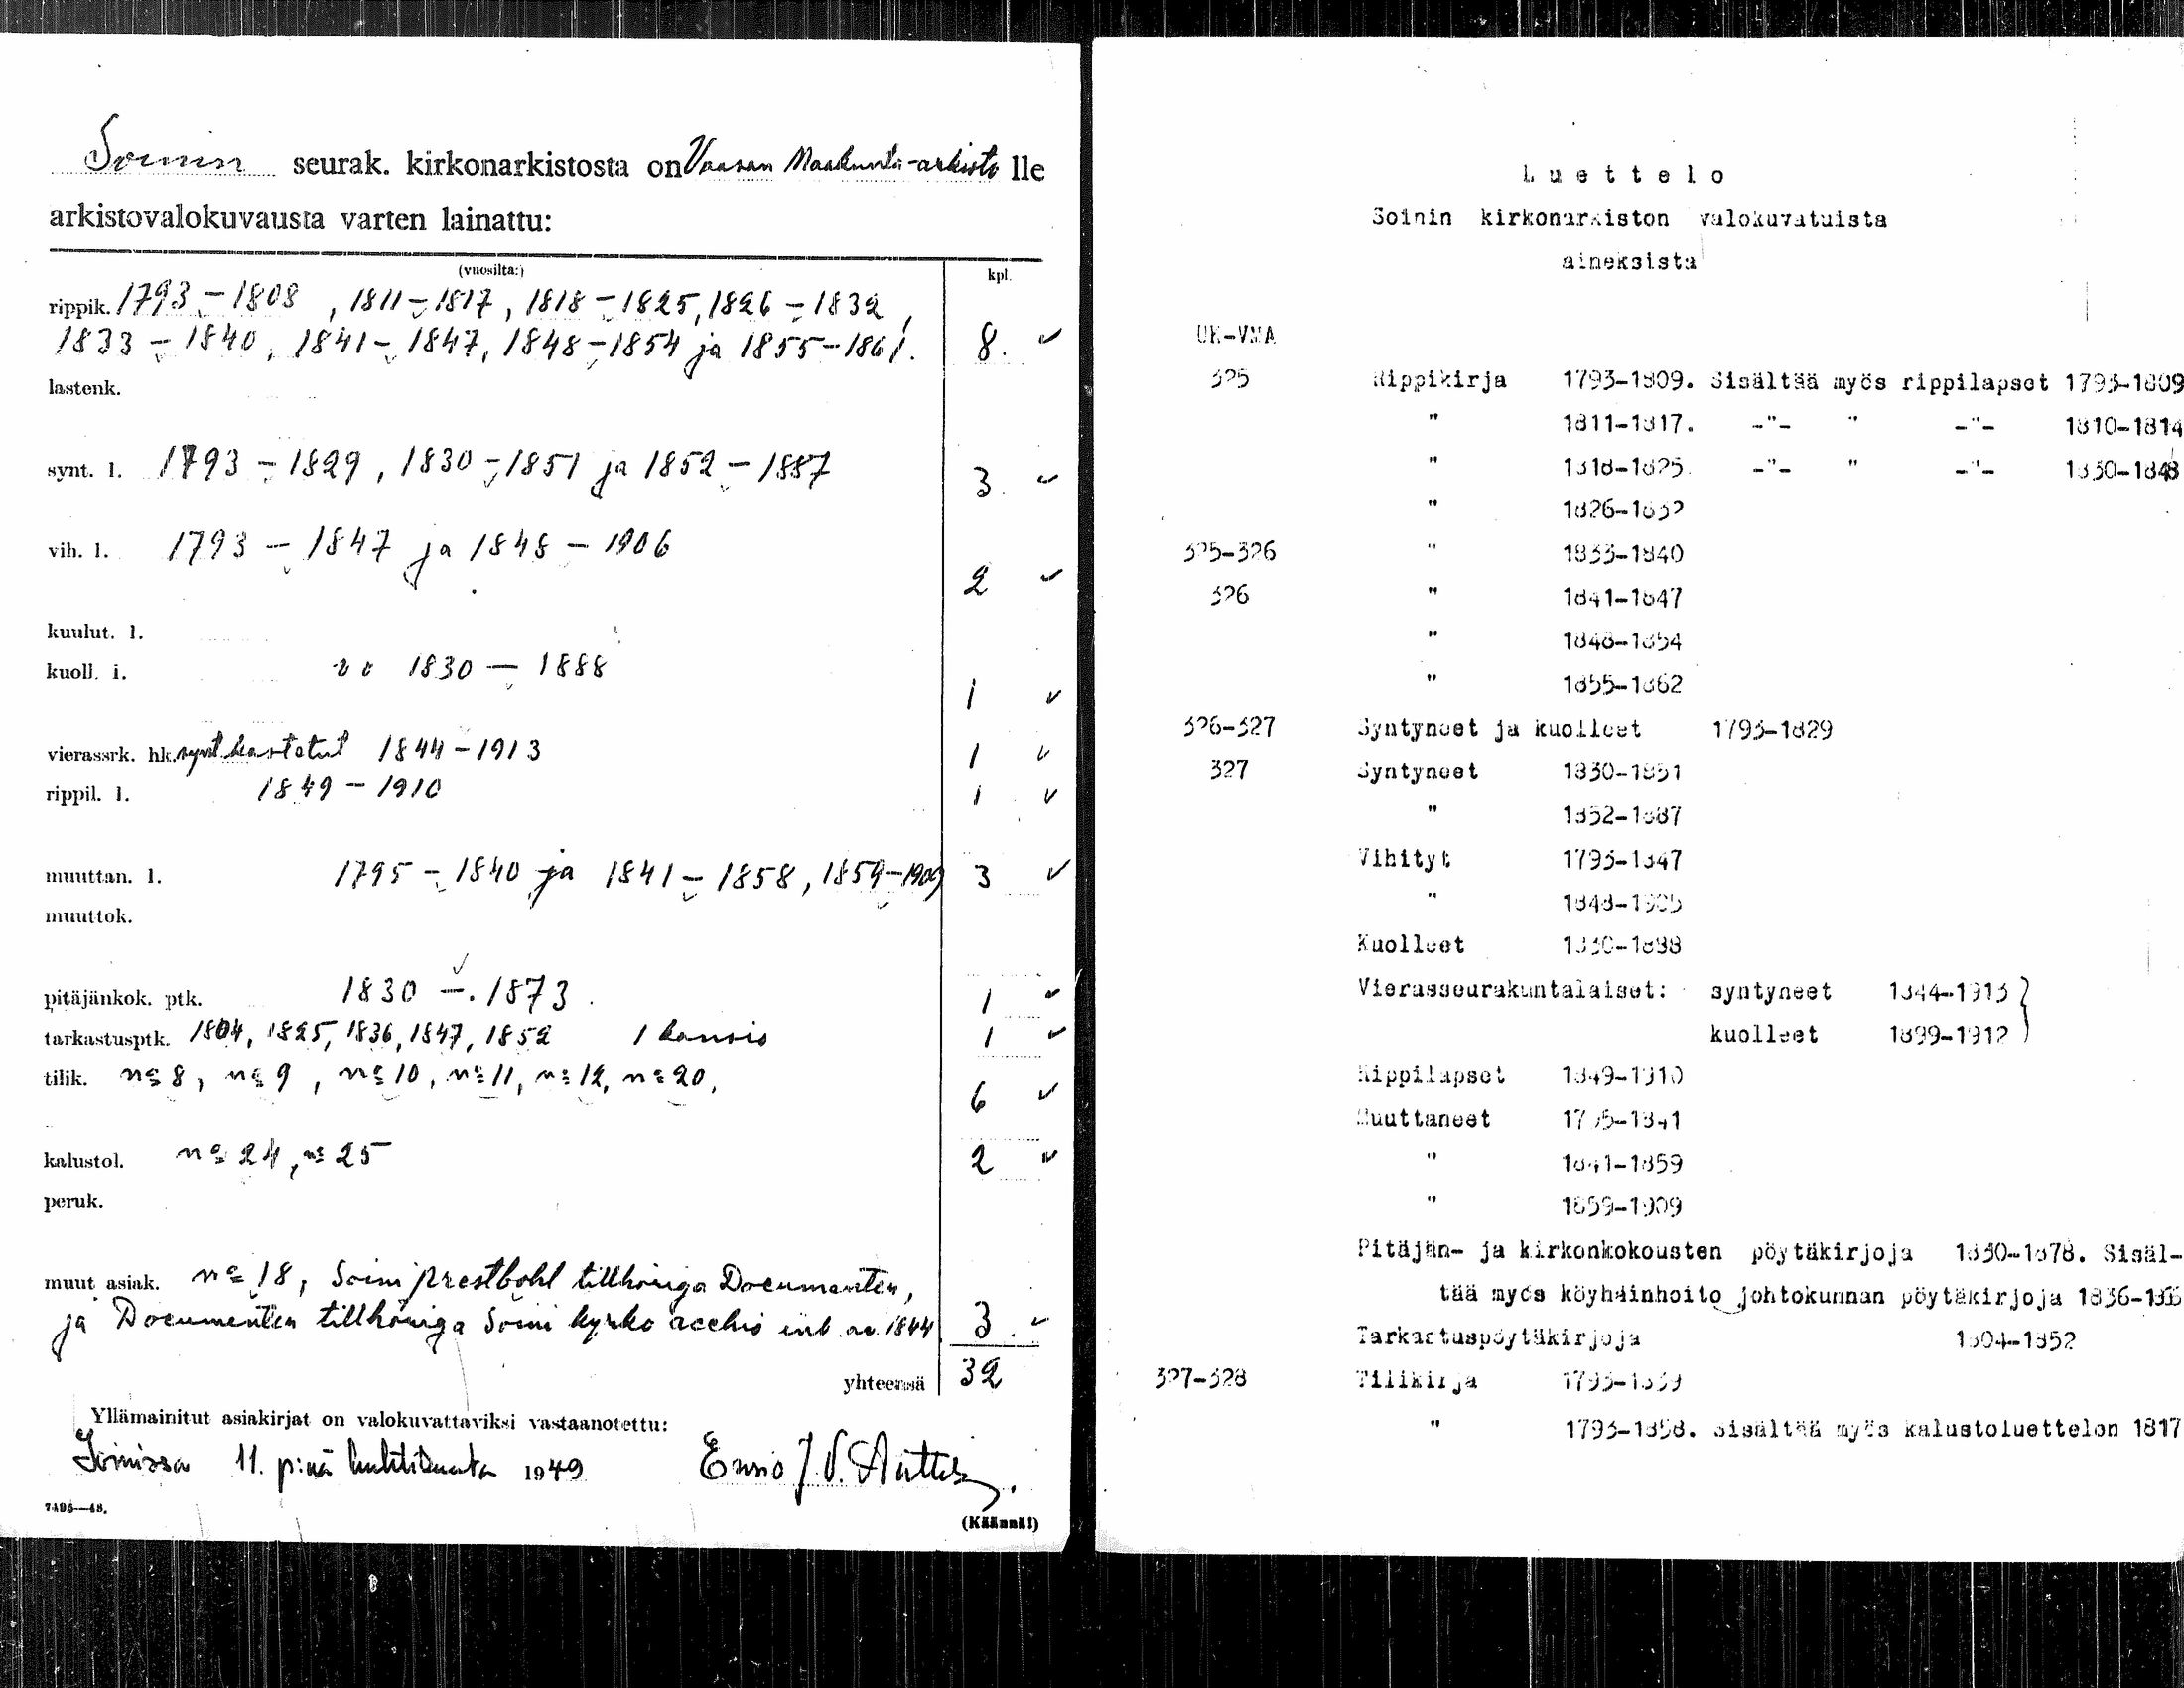 Soinin seurak. kirkonarkistosta on Vaasan Maakunta-arkisto lle
arkistovalokuvausta varten lainattu:
(vuosilta:) kpl.
rippik. 1793-1808, 1811-1817, 1818-1825, 1826-1832,
1833-1840, 1841-1847, 1848-1854 ja 1855-1861. 8.
lastenk.
synt. l. 1793-1829, 1830-1851 ja 1852-1887 3
vih. l. 1793-1847 ja 1848-1906
2
kuulut. l.
kuoll. l. 1830-1888
1
vierassrk. hk. synt. kastetut 1844-1913 1
rippil. l. 1849-1910 1
muuttan. l. 1795-1840 ja 1841-1858, 1859-1909 3
muuttok.
pitäjänkok. ptk. 1830-1873. 1
tarkastusptk. 1804, 1825, 1836, 1847, 1852 1 kansio 1
tilik. no 8, no 9, no 10, no 11, no 12, no 20, 6
kalustol. no 24, no 25 2
peruk.
muut asiak. no 18, Soini prestbohl tillhöriga Documenten,
ja Documenten tillhöriga Soini kyrko 1844 3.
yhteensä 32
Yllämainitut asiakirjat on valokuvattaviksi vastaanotettu:
Soinissa 11. p:nä huhtikuuta 1949
7495—48.
(Käännä!)
Luettelo
Soinin kirkonarkiston valokuvatuista
aineksista
UK-VMA
325 Rippikirja 1793-1809. Sisältää myös rippilapset 1793-1809
" 1811-1817. -"- " -"- 1810-1814
" 1818-1825. -"- " -"- 1830-1848
" 1826-1832
325-326 " 1833-1840
326 " 1841-1847
" 1848-1854
" 1855-1862
326-327 Syntyneet ja kuolleet 1793-1829
327 Syntyneet 1830-1851
" 1852-1887
Vihityt 1793-1847
" 1848-1905
Kuolleet 1830-1898
Vierasseurakuntalaiset: syntyneet 1844-1913
kuolleet 1899-1912
Rippilapset 1849-1910
Muuttaneet 1795-1841
" 1841-1859
" 1859-1909
Pitäjän- ja kirkonkokousten pöytäkirjoja 1830-1878. Sisäl-
tää myös köyhäinhoito johtokunnan pöytäkirjoja
Tarkastuspöytäkirjoja 1804-1852
327-328 Tilikirja 1793-1839
" 1793-1858. Sisältää myös kalustoluettelon 1817